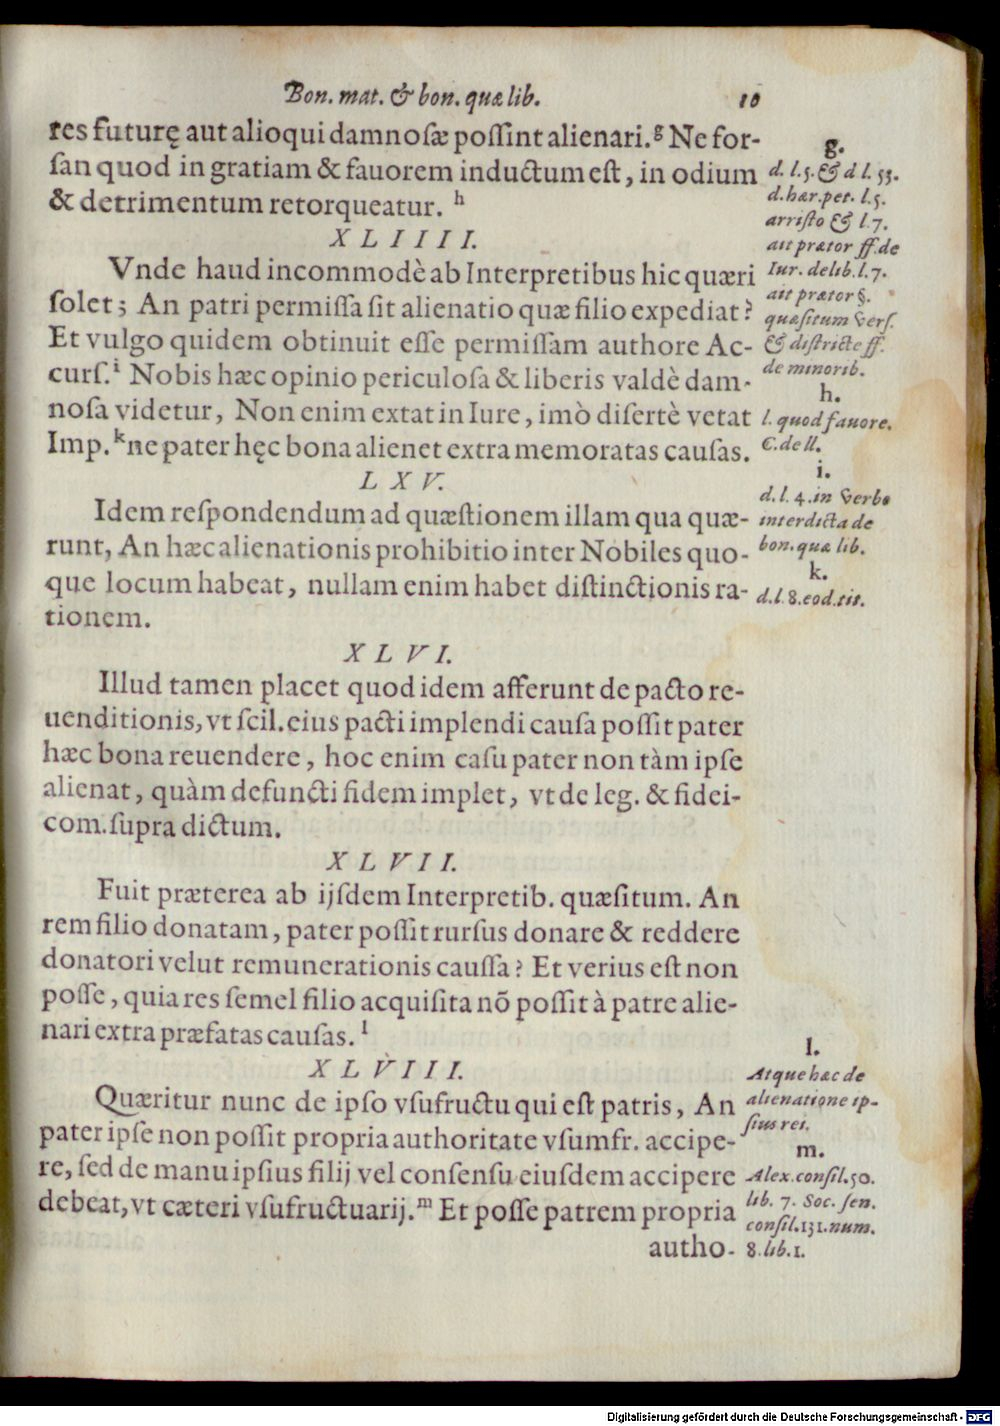 Bon. mat. & bon. quæ lib. 10
res futurę aut alioqui damnosæ poſſint alienari.g Ne for-
ſan quod in gratiam & fauorem inductum eſt, in odium
& detrimentum retorqueatur. h
X L I I I I.
Vnde haud incommodè ab Interpretibus hic quæri
ſolet; An patri permiſſa ſit alienatio quæ filio expediat?
Et vulgo quidem obtinuit eſſe permiſſam authore Ac-
curſ.i Nobis hæc opinio periculoſa & liberis valdè dam-
noſa videtur, Non enim extat in Iure, imò diſertè vetat
Imp.k ne pater hęc bona alienet extra memoratas cauſas.
L X V.
Idem reſpondendum ad quæſtionem illam qua quæ-
runt, An hæc alienationis prohibitio inter Nobiles quo-
que locum habeat, nullam enim habet diſtinctionis ra-
tionem.
X L V I.
Illud tamen placet quod idem afferunt de pacto re-
uenditionis, vt ſcil. eius pacti implendi cauſa poſſit pater
hæc bona reuendere, hoc enim caſu pater non tàm ipſe
alienat, quàm defuncti fidem implet, vt de leg. & fidei-
com. ſupra dictum.
X L V I I.
Fuit præterea ab ijſdem Interpretib. quæſitum. An
rem filio donatam, pater poſſit rurſus donare & reddere
donatori velut remunerationis cauſſa? Et verius eſt non
poſſe, quia res ſemel filio acquiſita nõ poſſit à patre alie-
nari extra præfatas cauſas. l
X L V I I I.
Quæritur nunc de ipſo vſufructu qui eſt patris, An
pater ipſe non poſſit propria authoritate vſumfr. accipe-
re, ſed de manu ipſius filij vel conſenſu eiuſdem accipere
debeat, vt cæteri vſufructuarij.m Et poſſe patrem propria
autho-
g.
d. l. 5. & d l. 53.
d. hær. pet. l. 5.
arriſto & l. 7.
ait prætor ff. de
Iur. delib. l. 7.
ait prætor §.
quæſitum verſ.
& diſtricte ff.
de minorib.
h.
l. quod fauore.
C. de ll.
i.
d. l. 4. in verbo
interdicta de
bon. quæ lib.
k.
d. l. 8. eod. tit.
l.
Atque hæc de
alienatione ip-
ſius rei.
m.
Alex. conſil. 50.
lib. 7. Soc. ſen.
conſil. 131. num.
8. lib. 1.
Digitalisierung gefördert durch die Deutsche Forschungsgemeinschaft - DFG